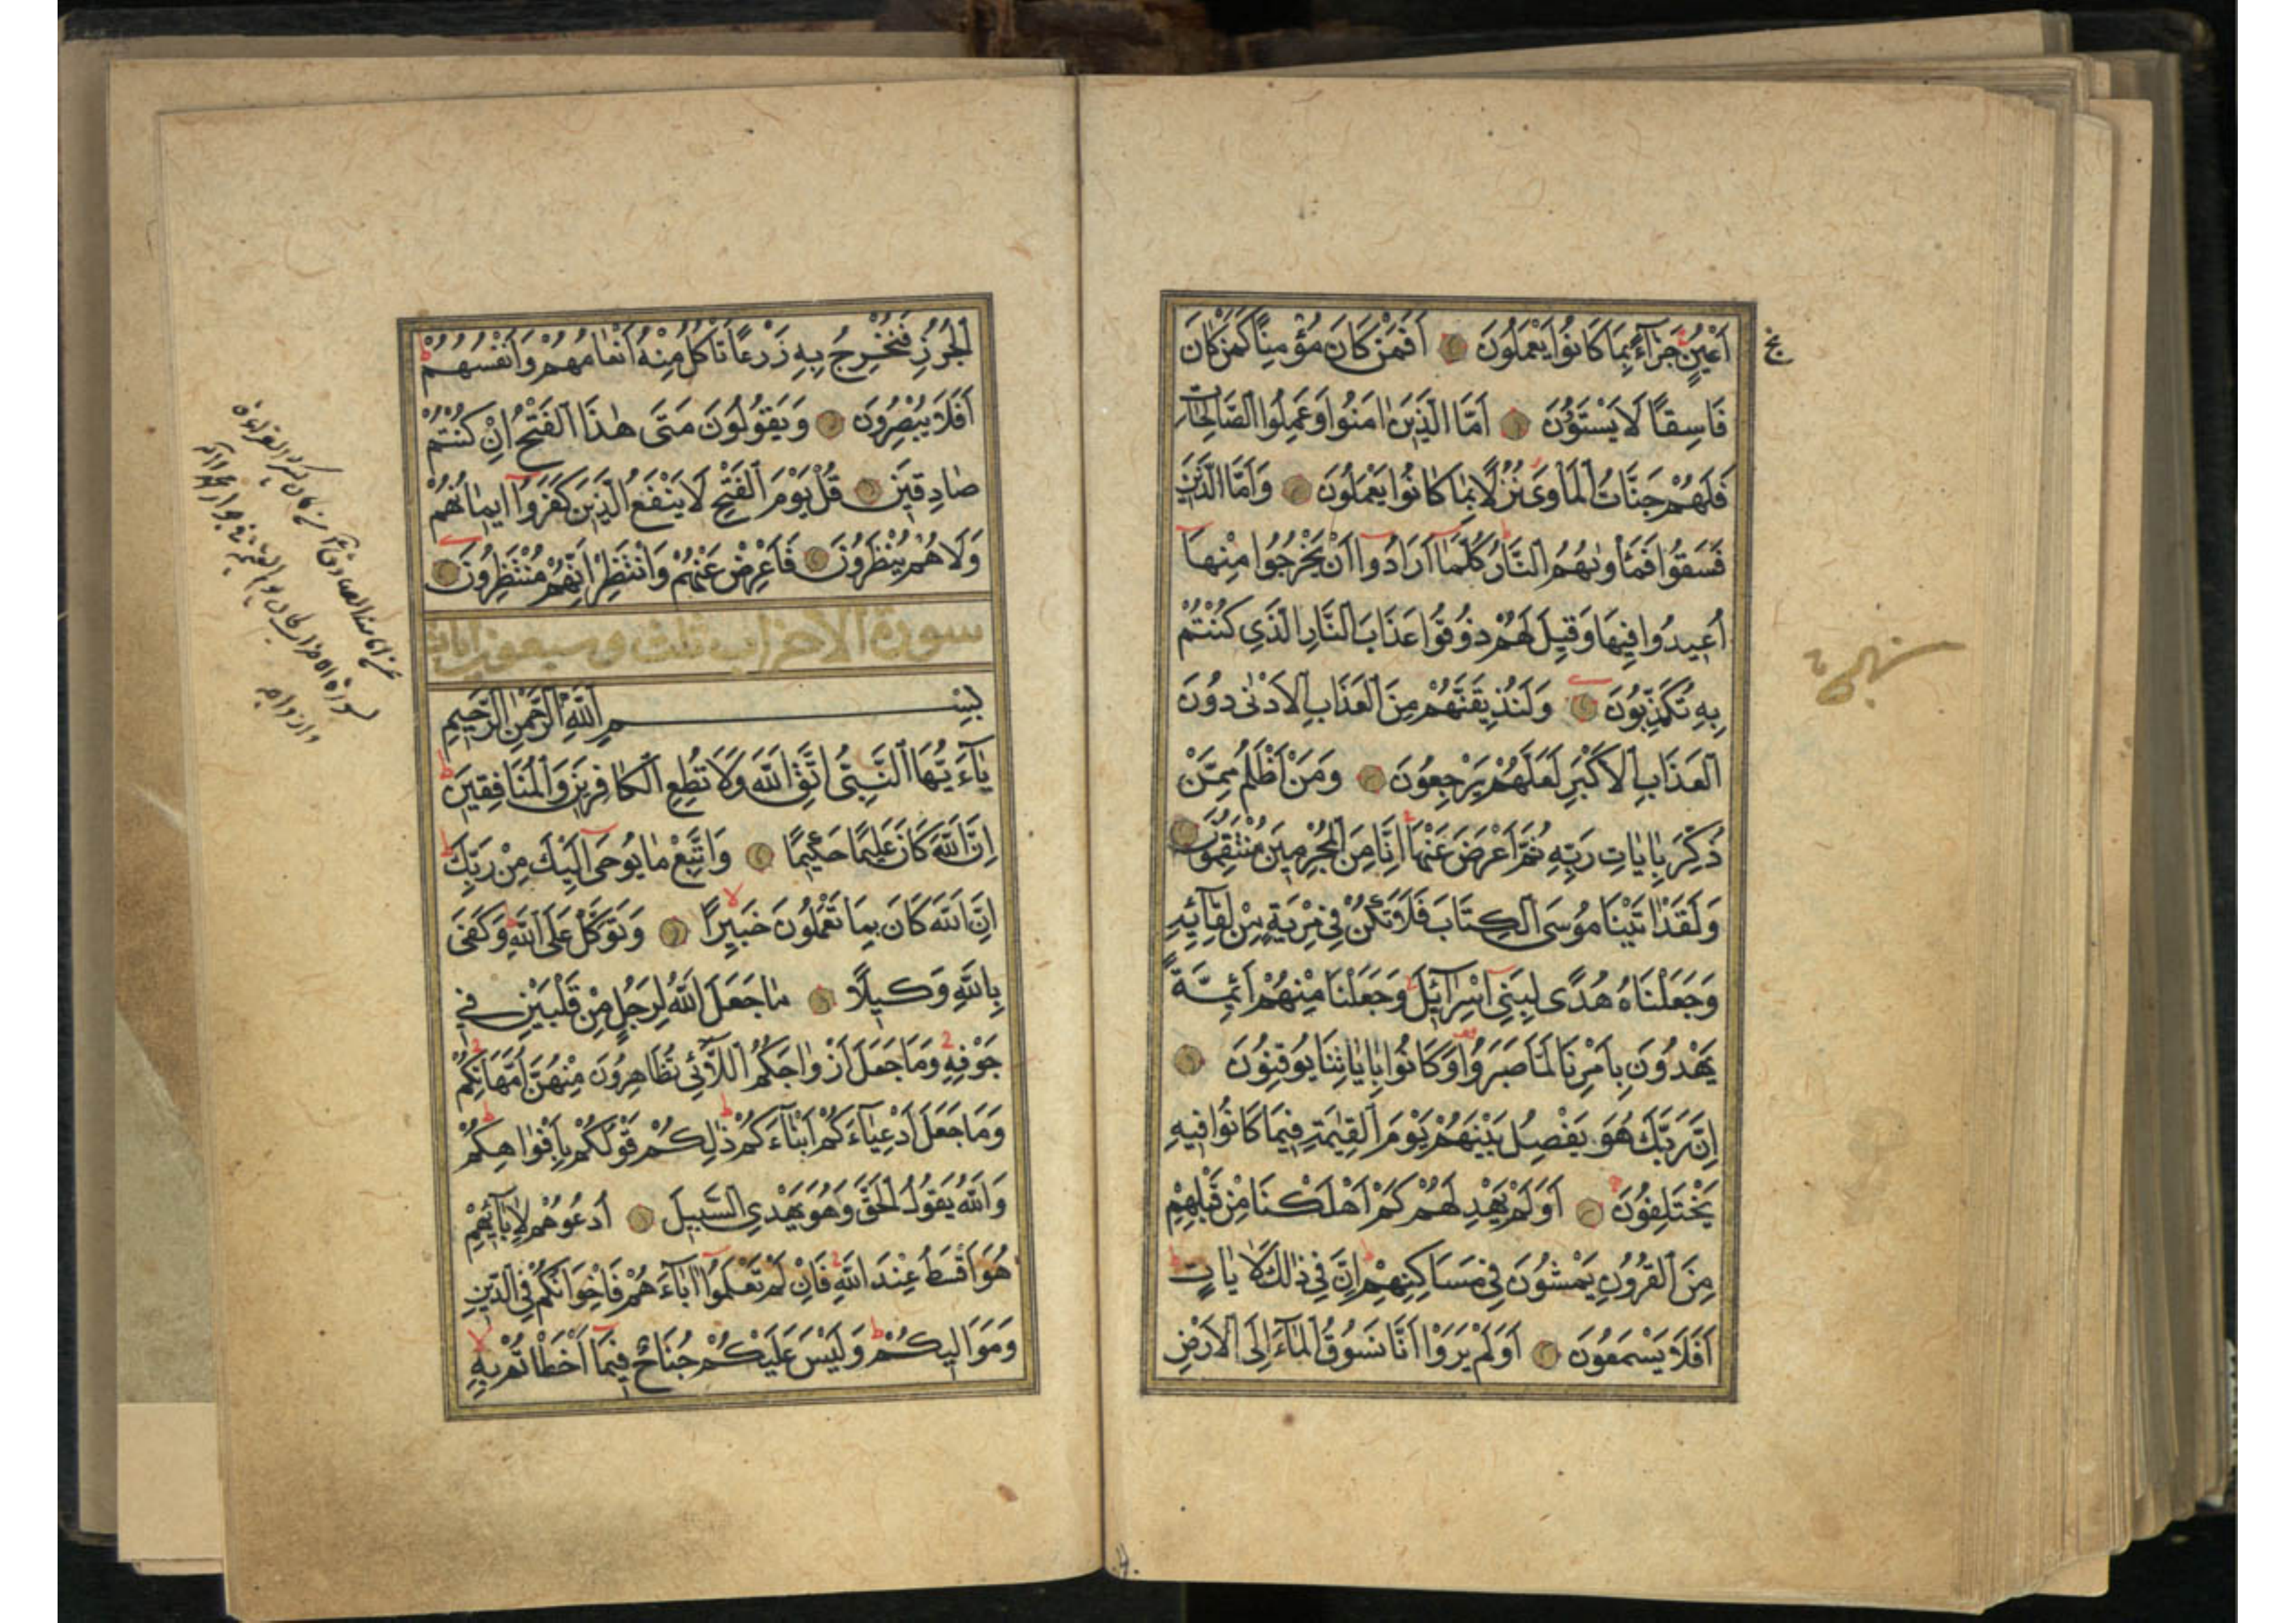 أَعْيُنٍ جَزَآءً بِمَا كَانُوا يَعْمَلُونَ أَفَمَنْ كَانَ مُؤْمِنًا كَمَنْ كَانَ
فَاسِقًا لَا يَسْتَوُونَ أَمَّا الَّذِينَ اٰمَنُوا وَعَمِلُوا الصَّالِحَاتِ
فَلَهُمْ جَنَّاتُ الْمَأْوَى نُزُلًا بِمَا كَانُوا يَعْمَلُونَ وَأَمَّا الَّذِينَ
فَسَقُوا فَمَأْوٰيهُمُ النَّارُ كُلَّمَآ أَرَادُوٓا أَنْ يَخْرُجُوا مِنْهَآ
أُعِيدُوا فِيهَا وَقِيلَ لَهُمْ ذُوقُوا عَذَابَ النَّارِ الَّذِي كُنْتُمْ
بِهِ تُكَذِّبُونَ وَلَنُذِيقَنَّهُمْ مِنَ الْعَذَابِ الْأَدْنٰى دُونَ
الْعَذَابِ الْأَكْبَرِ لَعَلَّهُمْ يَرْجِعُونَ وَمَنْ أَظْلَمُ مِمَّنْ
ذُكِّرَ بِاٰيَاتِ رَبِّهِ ثُمَّ أَعْرَضَ عَنْهَآ إِنَّا مِنَ الْمُجْرِمِينَ مُنْتَقِمُونَ
وَلَقَدْ اٰتَيْنَا مُوسَى الْكِتَابَ فَلَا تَكُنْ فِي مِرْيَةٍ مِنْ لِقَآئِهِ
وَجَعَلْنَاهُ هُدًى لِبَنِيٓ إِسْرَآئِلَ وَجَعَلْنَا مِنْهُمْ أَئِمَّةً
يَهْدُونَ بِأَمْرِنَا لَمَّا صَبَرُوا وَكَانُوا بِاٰيَاتِنَا يُوقِنُونَ
إِنَّ رَبَّكَ هُوَ يَفْصِلُ بَيْنَهُمْ يَوْمَ الْقِيٰمَةِ فِيمَا كَانُوا فِيهِ
يَخْتَلِفُونَ أَوَلَمْ يَهْدِ لَهُمْ كَمْ أَهْلَكْنَا مِنْ قَبْلِهِمْ
مِنَ الْقُرُونِ يَمْشُونَ فِي مَسَاكِنِهِمْ إِنَّ فِي ذٰلِكَ لَاٰيَاتٍ
أَفَلَا يَسْمَعُونَ أَوَلَمْ يَرَوْا أَنَّا نَسُوقُ الْمَآءَ إِلَى الْأَرْضِ
الْجُرُزِ فَنُخْرِجُ بِهِ زَرْعًا تَأْكُلُ مِنْهُ أَنْعَامُهُمْ وَأَنْفُسُهُمْ
أَفَلَا يُبْصِرُونَ وَيَقُولُونَ مَتَى هٰذَا الْفَتْحُ إِنْ كُنْتُمْ
صَادِقِينَ قُلْ يَوْمَ الْفَتْحِ لَا يَنْفَعُ الَّذِينَ كَفَرُوٓا إِيمَانُهُمْ
وَلَا هُمْ يُنْظَرُونَ فَأَعْرِضْ عَنْهُمْ وَانْتَظِرْ إِنَّهُمْ مُنْتَظِرُونَ
سورة الاحزاب ثلث وسبعون اياة
بِسْمِ اللّٰهِ الرَّحْمٰنِ الرَّحِيمِ
يَآءَيُّهَا النَّبِيُّ اتَّقِ اللّٰهَ وَلَا تُطِعِ الْكَافِرِينَ وَالْمُنَافِقِينَ
إِنَّ اللّٰهَ كَانَ عَلِيمًا حَكِيمًا وَاتَّبِعْ مَا يُوحَىٓ إِلَيْكَ مِنْ رَبِّكَ
إِنَّ اللّٰهَ كَانَ بِمَا تَعْمَلُونَ خَبِيرًا وَتَوَكَّلْ عَلَى اللّٰهِ وَكَفَى
بِاللّٰهِ وَكِيلًا مَا جَعَلَ اللّٰهُ لِرَجُلٍ مِنْ قَلْبَيْنِ فِي
جَوْفِهِ وَمَا جَعَلَ أَزْوَاجَكُمُ اللَّآئِي تُظَاهِرُونَ مِنْهُنَّ أُمَّهَاتِكُمْ
وَمَا جَعَلَ أَدْعِيَآءَكُمْ أَبْنَآءَكُمْ ذٰلِكُمْ قَوْلُكُمْ بِأَفْوَاهِكُمْ
وَاللّٰهُ يَقُولُ الْحَقَّ وَهُوَ يَهْدِي السَّبِيلَ أُدْعُوهُمْ لِاٰبَآئِهِمْ
هُوَ أَقْسَطُ عِنْدَ اللّٰهِ فَإِنْ لَمْ تَعْلَمُوٓا اٰبَآءَهُمْ فَإِخْوَانُكُمْ فِي الدِّينِ
وَمَوَالِيكُمْ وَلَيْسَ عَلَيْكُمْ جُنَاحٌ فِيمَآ أَخْطَأْتُمْ بِهِ